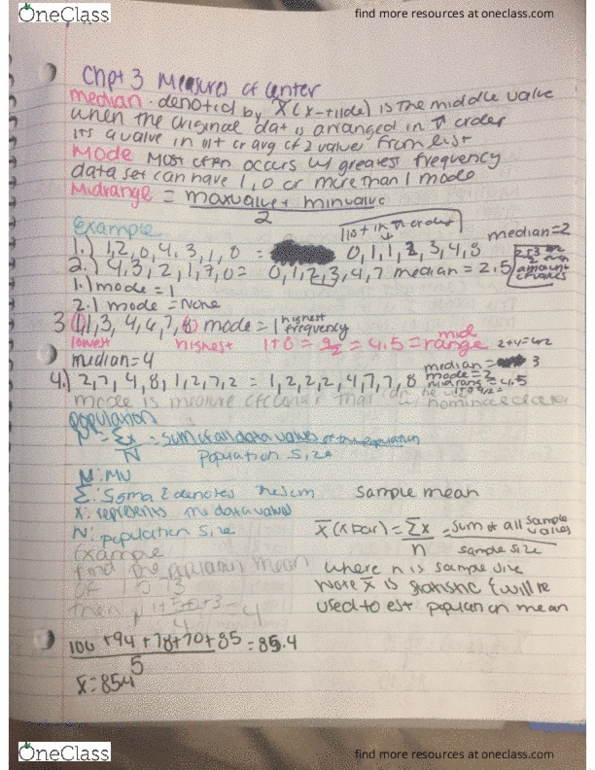 OneClass
find more resources at oneclass.com
Chpt 3 Measures of center
median - denoted by x̃ (x-tilde) is the middle value
when the original dat is arranged in ↑ order
its a value in list or avg of 2 values from list
Mode Most often occurs w/ greatest frequency
data set can have 1, 0 or more than 1 mode
Midrange = max value + min value
2
Example
list in ↑ order
1.) 1, 2, 0, 4, 3, 1, 8 = 0, 1, 1, 2, 3, 4, 8 median = 2
2.) 4, 3, 2, 1, 7, 0 = 0, 1, 2, 3, 4, 7 median = 2.5
1.) mode = 1
2.) mode = None
3 1, 1, 3, 4, 6, 7, 8 mode = 1 highest frequency
lowest highest 1+8 = 9/2 = 4.5 = mid range
median = 4
2+4=6÷2
median = 3
4.) 2, 7, 4, 8, 1, 2, 7, 2 = 1, 2, 2, 2, 4, 7, 7, 8
mode = 2
midrang = 4.5
mode is measure of center that can be w/ nominal data
population
μ = Σx = sum of all data values of the population
N population size
M: MU
Σ: Sigma Σ denotes the sum
x: represents data values
N: population size
Sample mean
x̄ (x bar) = Σx = sum of all sample values
n sample size
where n is sample size
Note x̄ is statistic & will be
used to est population mean
Example
find the population mean
of 1 5 7 3
then μ 1+5+7+3 = 4
4
100 + 94 + 78 + 70 + 85 = 85.4
5
x̄ = 85.4
OneClass
find more resources at oneclass.com